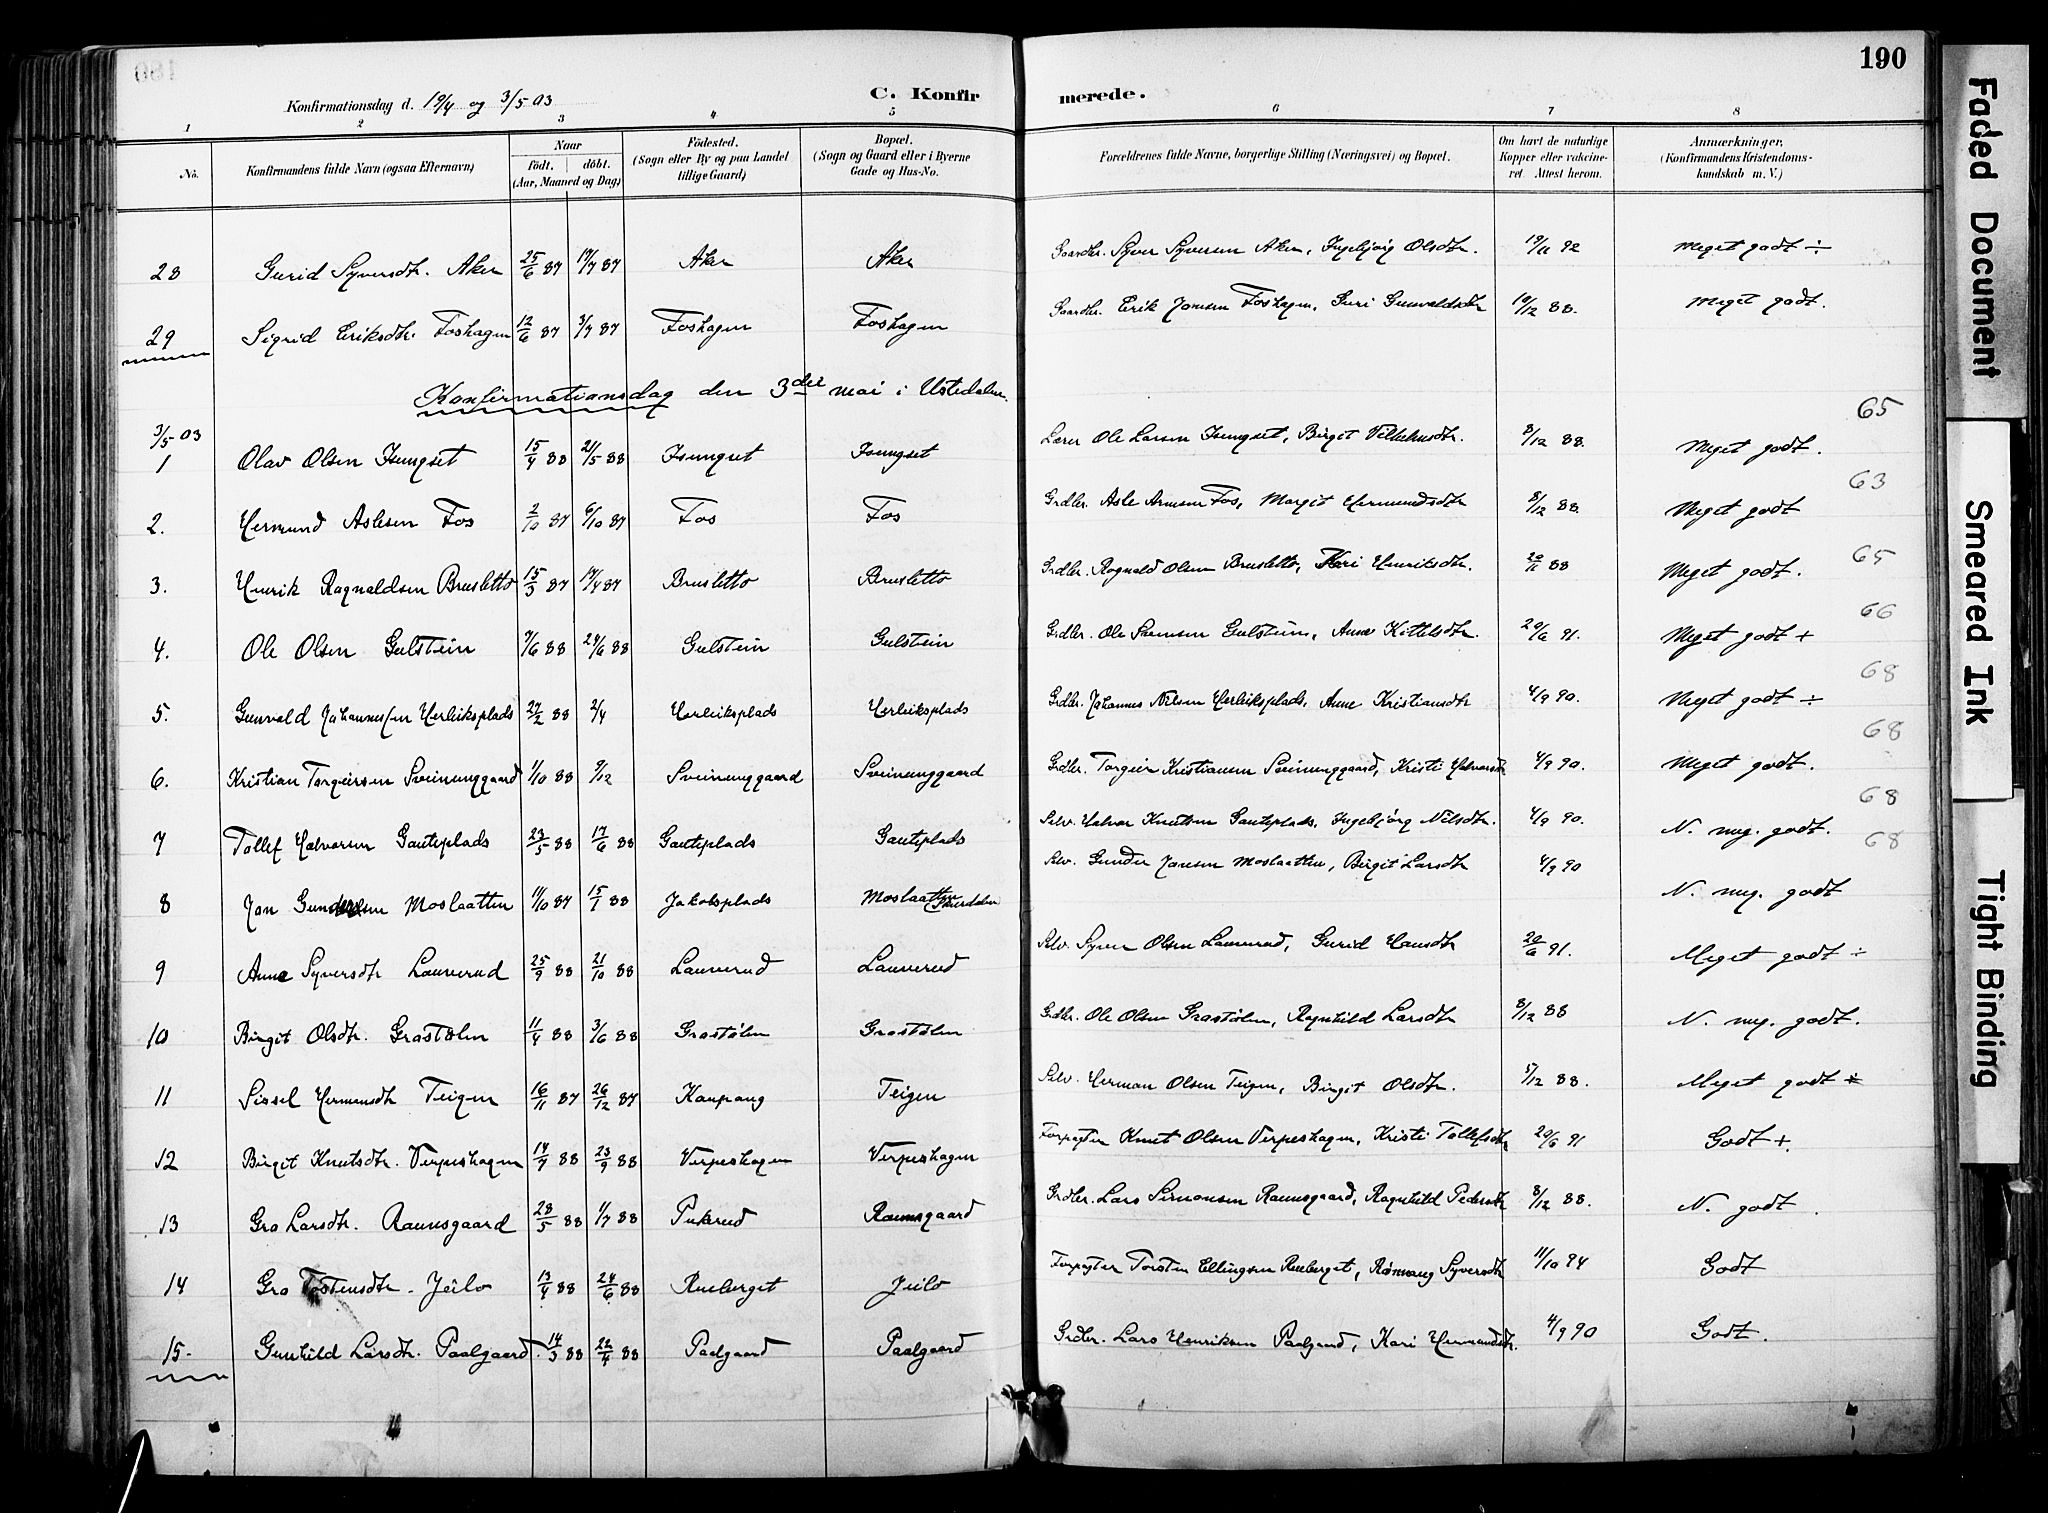 190
Konfirmationsdag d. 19/4 og 3/5 03
C. Konfirmerede.
1 2 3 4 5 6 7 8
No.
Konfirmandens fulde Navn (ogsaa Efternavn)
Naar
født. døbt.
(Aar, Maaned og Dag)
Födested.
(Sogn eller By og paa Landet tillige Gaard)
Bopæl.
(Sogn og Gaard eller i Byerne Gade og Hus-No.
Forældrenes fulde Navne, borgerlige Stilling (Næringsvei) og Bopæl.
Om havt de naturlige Kopper eller vakcineret. Attest herom.
Anmærkninger.
(Konfirmandens Kristendomskundskab m. V.)
28 Gurid Syversdtr. Aker 25/6 87 17/7 87 Aker Aker Gaardbr. Syver Syversen Aker, Ingebjørg Olsdtr. 19/11 92 Meget godt ÷
29 Sigrid Eriksdtr. Foshagen 12/6 87 3/7 87 Foshagen Foshagen Gaardbr. Erik Jonsen Foshagen, Guri Gunvaldsdtr 10/12 88. Meget godt.
Konfirmationsdag den 3die mai i Ustedalen.
3/5 03
1 Olav Olsen Isungset 15/4 88 21/5 88 Isungset Isungset Lærer Ole Larsen Isungset, Birgit Villehusdtr. 8/12 88. Meget godt. 65
2. Hermund Aslesen Fos 2/10 87 6/10 87 Fos Fos Grdbr. Asle Arnesen Fos, Margit Hermundsdtr 8/12 88. Meget godt 63
3. Henrik Ragnaldsen Brusletto 15/3 87 17/4 87 Brusletto Brusletto Grdbr. Ragnald Olsen Brusletto, Kari Henriksdtr. 20/11 88 Meget godt. 65
4. Ole Olsen Gulstein 7/6 88 24/6 88 Gulstein Gulstein Grdbr. Ole Svensen Gulstein, Anne Kittelsdtr. 20/6 91. Meget godt + 66
5. Gunvald Johannessen Herleiksplads 27/2 88 2/4 Herleiksplads Herleiksplads Grdbr. Johannes Nilsen Herleiksplads, Anne Kristiansdtr 4/9 90. Meget godt ÷ 68
6. Kristian Torgeirsen Sveinunggaard 1/10 88 9/12 Sveinunggaard Sveinunggaard Grdbr. Torgeir Kristiansen Sveinunggaard, Kristi Halvorsdtr 4/9 90. Meget godt. 68
7 Tollef Halvorsen Gauteplads 23/5 88 17/6 88 Gauteplads Gauteplads Selv. Halvor Knutsen Gauteplads, Ingebjørg Nilsdtr. 4/9 90. N. meg. godt. 68
8 Jon Gundersen Moslaatten 11/10 87 15/1 88 Jakobsplads Moslaatten Skurdalen Selv. Gunder Jonsen Moslaatten, Birgit Larsdtr 4/9 90 N. meg. godt 68
9 Anne Syversdtr Lauverud 25/9 88 21/10 88 Lauverud Lauverud Selv. Syver Olsen Lauverud, Gurid Hansdtr 20/6 91. Meget godt ÷
10 Birgit Olsdtr. Grøstølen 11/4 88 3/6 88 Grøstølen Grøstølen Grdbr. Ole Olsen Grøstølen, Ragnhild Larsdtr 8/12 88 N. meg. godt.
11 Sissel Hermansdtr Teigen 16/11 87 26/12 87 Kaupang Teigen Selv. Herman Olsen Teigen, Birgit Olsdtr. 8/12 88. Meget godt
12 Birgit Knutsdtr. Verpeshagen 14/7 88 23/9 88 Verpeshagen Verpeshagen Forpagter Knut Olsen Verpeshagen, Kristi Tollefsdtr 20/6 91 Godt +.
13 Gro Larsdtr. Raunsgaard 28/5 88 1/7 88 Pukerud Raunsgaard Grdbr. Lars Simonsen Raunsgaard, Ragnhild Pedersdtr 8/12 88. N. godt.
14 Gro Tostensdtr. Jeilo 13/4 88 24/6 88 Rueberget Jeilo Forpagter Torsten Ellingsen Rueberget, Rønnaug Syversdtr 11/10 94 Godt
15. Gunhild Larsdtr. Paalgaard. 14/3 88 22/4 88 Paalgaard Paalgaard Grdbr. Lars Henriksen Paalgaard, Kari Hermundsdtr. 4/9 90 Godt.
Faded Document
Smeared Ink
Tight Binding